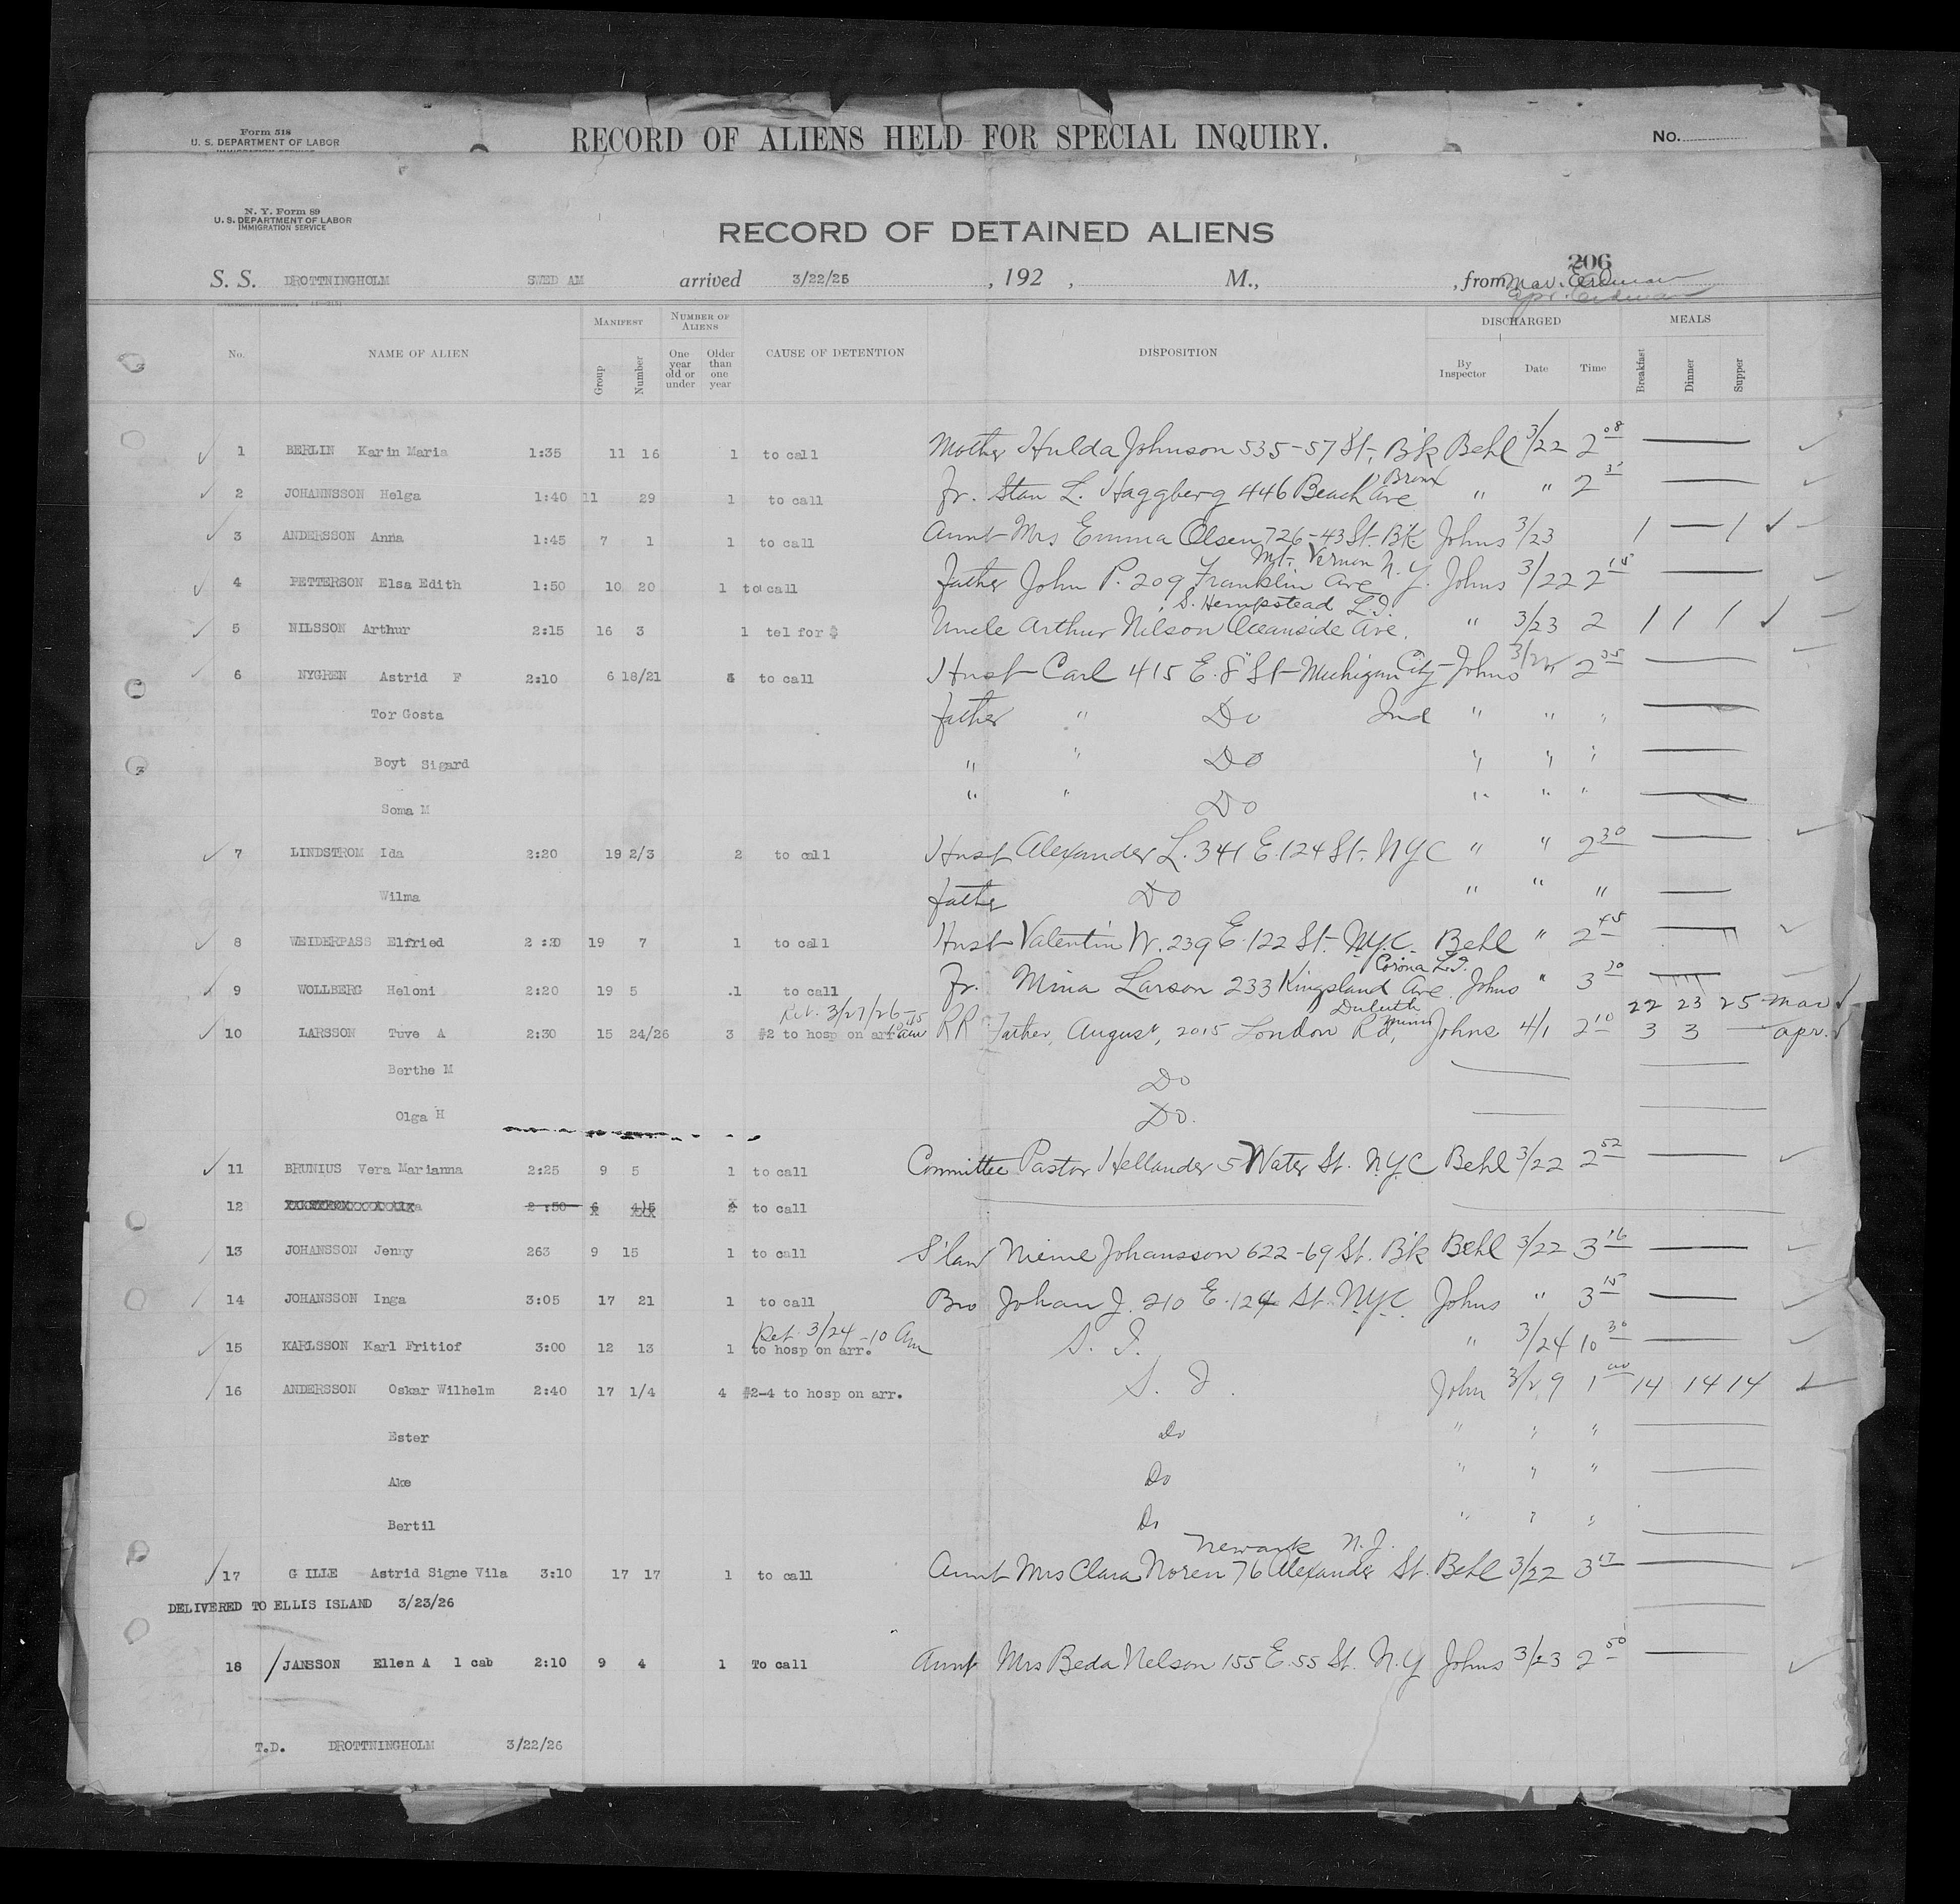 Form 518
U. S. DEPARTMENT OF LABOR
IMMIGRATION SERVICE
RECORD OF ALIENS HELD FOR SPECIAL INQUIRY.
No.
N. Y. Form 89
U. S. DEPARTMENT OF LABOR
IMMIGRATION SERVICE
RECORD OF DETAINED ALIENS
206
S. S. DROTTNINGHOLM SWED AM arrived 3/22/26 , 192 , M., , from Mar. Erdman
Apr. Erdman
No. NAME OF ALIEN MANIFEST Group Number NUMBER OF ALIENS One year old or under Older than one year CAUSE OF DETENTION DISPOSITION DISCHARGED By Inspector Date Time MEALS Breakfast Dinner Supper
1 BERLIN Karin Maria 1:35 11 16 1 to call Mother Hulda Johnson 535-57 St. B'k Behl 3/22 2 08
2 JOHANNSSON Helga 1:40 11 29 1 to call Fr. Stan L. Haggberg 446 Beach Ave Bronx " " 2
3 ANDERSSON Anna 1:45 7 1 1 to call Aunt Mrs Emma Olsen 726-43 St. B'k Johns 3/23 1 — 1
4 PETTERSON Elsa Edith 1:50 10 20 1 to call father John P. 209 Franklin Ave Mt. Vernon N.Y. Johns 3/22 2 15
5 NILSSON Arthur 2:15 16 3 1 tel for $ Uncle Arthur Nilson Oceanside Ave. S. Hempstead L.I. " 3/23 2 1 1 1
6 NYGREN Astrid F 2:10 6 18/21 4 to call Husb Carl 415 E. 8" St Michigan City Johns 3/22 2 35
Tor Gosta father " Do Ind " " "
Boyt Sigard " " Do " " "
Soma M " " Do " " "
7 LINDSTROM Ida 2:20 19 2/3 2 to call Husb Alexander L. 341 E. 124 St. NYC " " 2 30
Wilma father Do " " "
8 WEIDERPASS Elfried 2:20 19 7 1 to call Husb Valentin W. 239 E. 122 St. N.Y.C. Behl " 2 45
9 WOLLBERG Heloni 2:20 19 5 1 to call Fr. Mina Larson 233 Kingsland Ave. Corona L.I. Johns " 3 30
Ret. 3/27/26 - 10 45 am
22 23 25 Mar
10 LARSSON Tuve A 2:30 15 24/26 3 #2 to hosp on arr RR Father, August, 2015 London Rd, Duluth Minn Johns 4/1 2 10 3 3 apr.
Berthe M Do
Olga H Do.
11 BRUNIUS Vera Marianna 2:25 9 5 1 to call Committee Pastor Hellander 5 Water St. N.Y.C Behl 3/22 2 52
12 2:50 6 4/5 2 to call
13 JOHANSSON Jenny 263 9 15 1 to call S'law Nieme Johansson 622-69 St. B'k Behl 3/22 3 16
14 JOHANSSON Inga 3:05 17 21 1 to call Bro Johan J. 210 E. 124 St. N.Y.C. Johns " 3 15
Ret 3/24 - 10 Am
15 KARLSSON Karl Fritiof 3:00 12 13 1 to hosp on arr. S. I. " 3/24 10 30
16 ANDERSSON Oskar Wilhelm 2:40 17 1/4 4 #2-4 to hosp on arr. S. I. John 3/29 1 00 14 14 14
Ester Do " " "
Ake Do " " "
Bertil Do " " "
17 GILLE Astrid Signe Vila 3:10 17 17 1 to call Aunt Mrs Clara Noren 76 Alexander St. Newark N.J. Behl 3/22 3 17
DELIVERED TO ELLIS ISLAND 3/23/26
18 JANSSON Ellen A 1 cab 2:10 9 4 1 To call Aunt Mrs Beda Nelson 155 E. 55 St. N.Y Johns 3/23 2 50
T.D. DROTTNINGHOLM 3/22/26